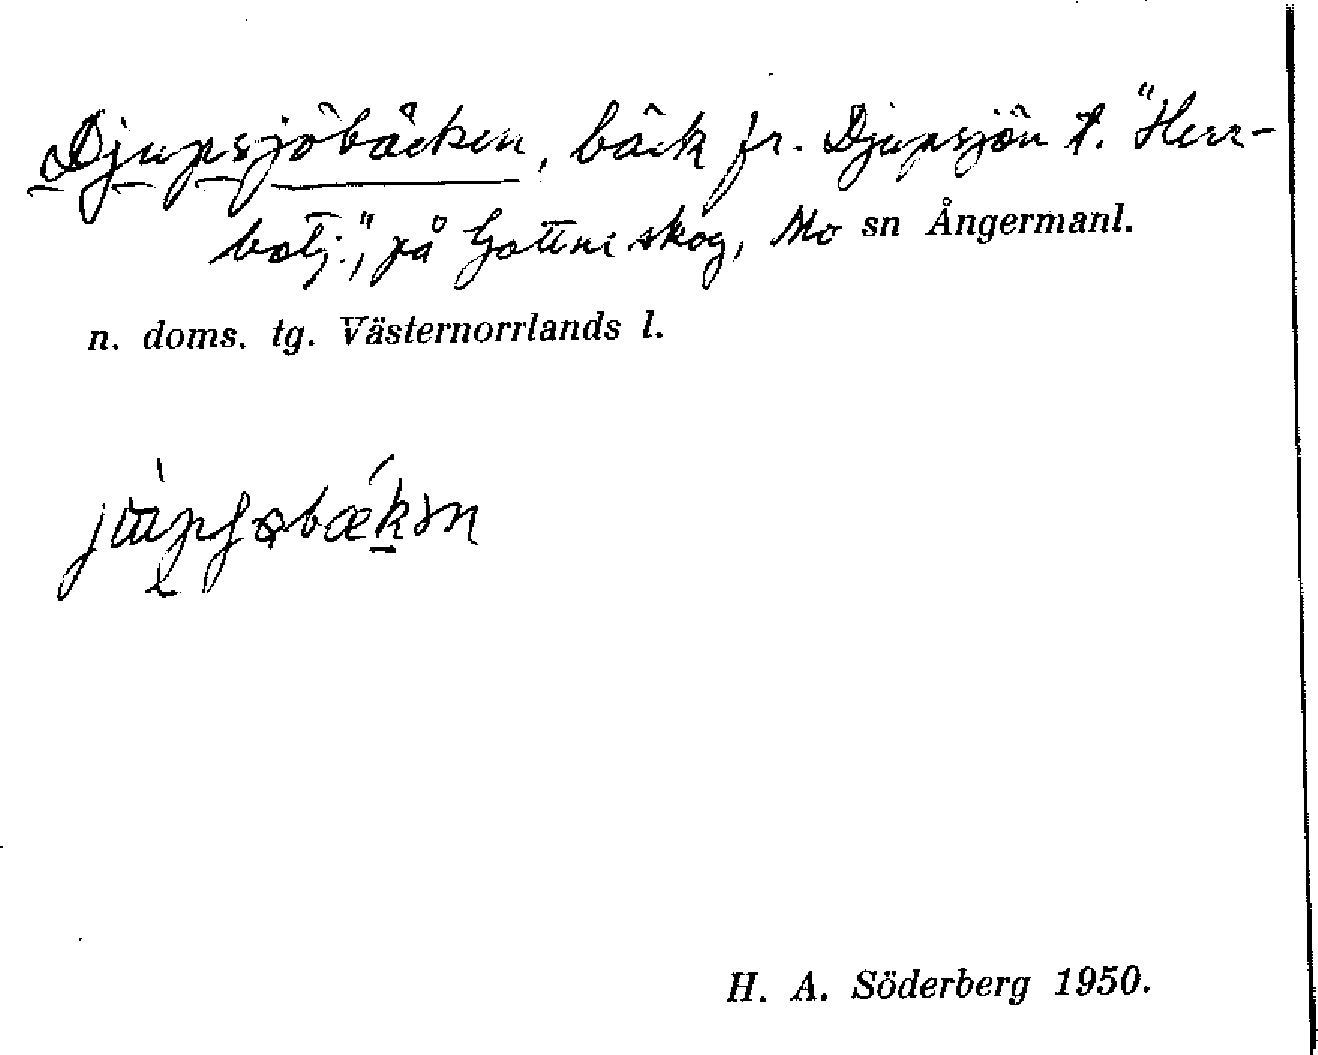 Djupsjöbäcken, bäck fr. Djupsjön t. "Herr-
botj.", på Gottne skog, Mo sn Ångermanl.
n. doms. tg. Västernorrlands l.
H. A. Söderberg 1950.